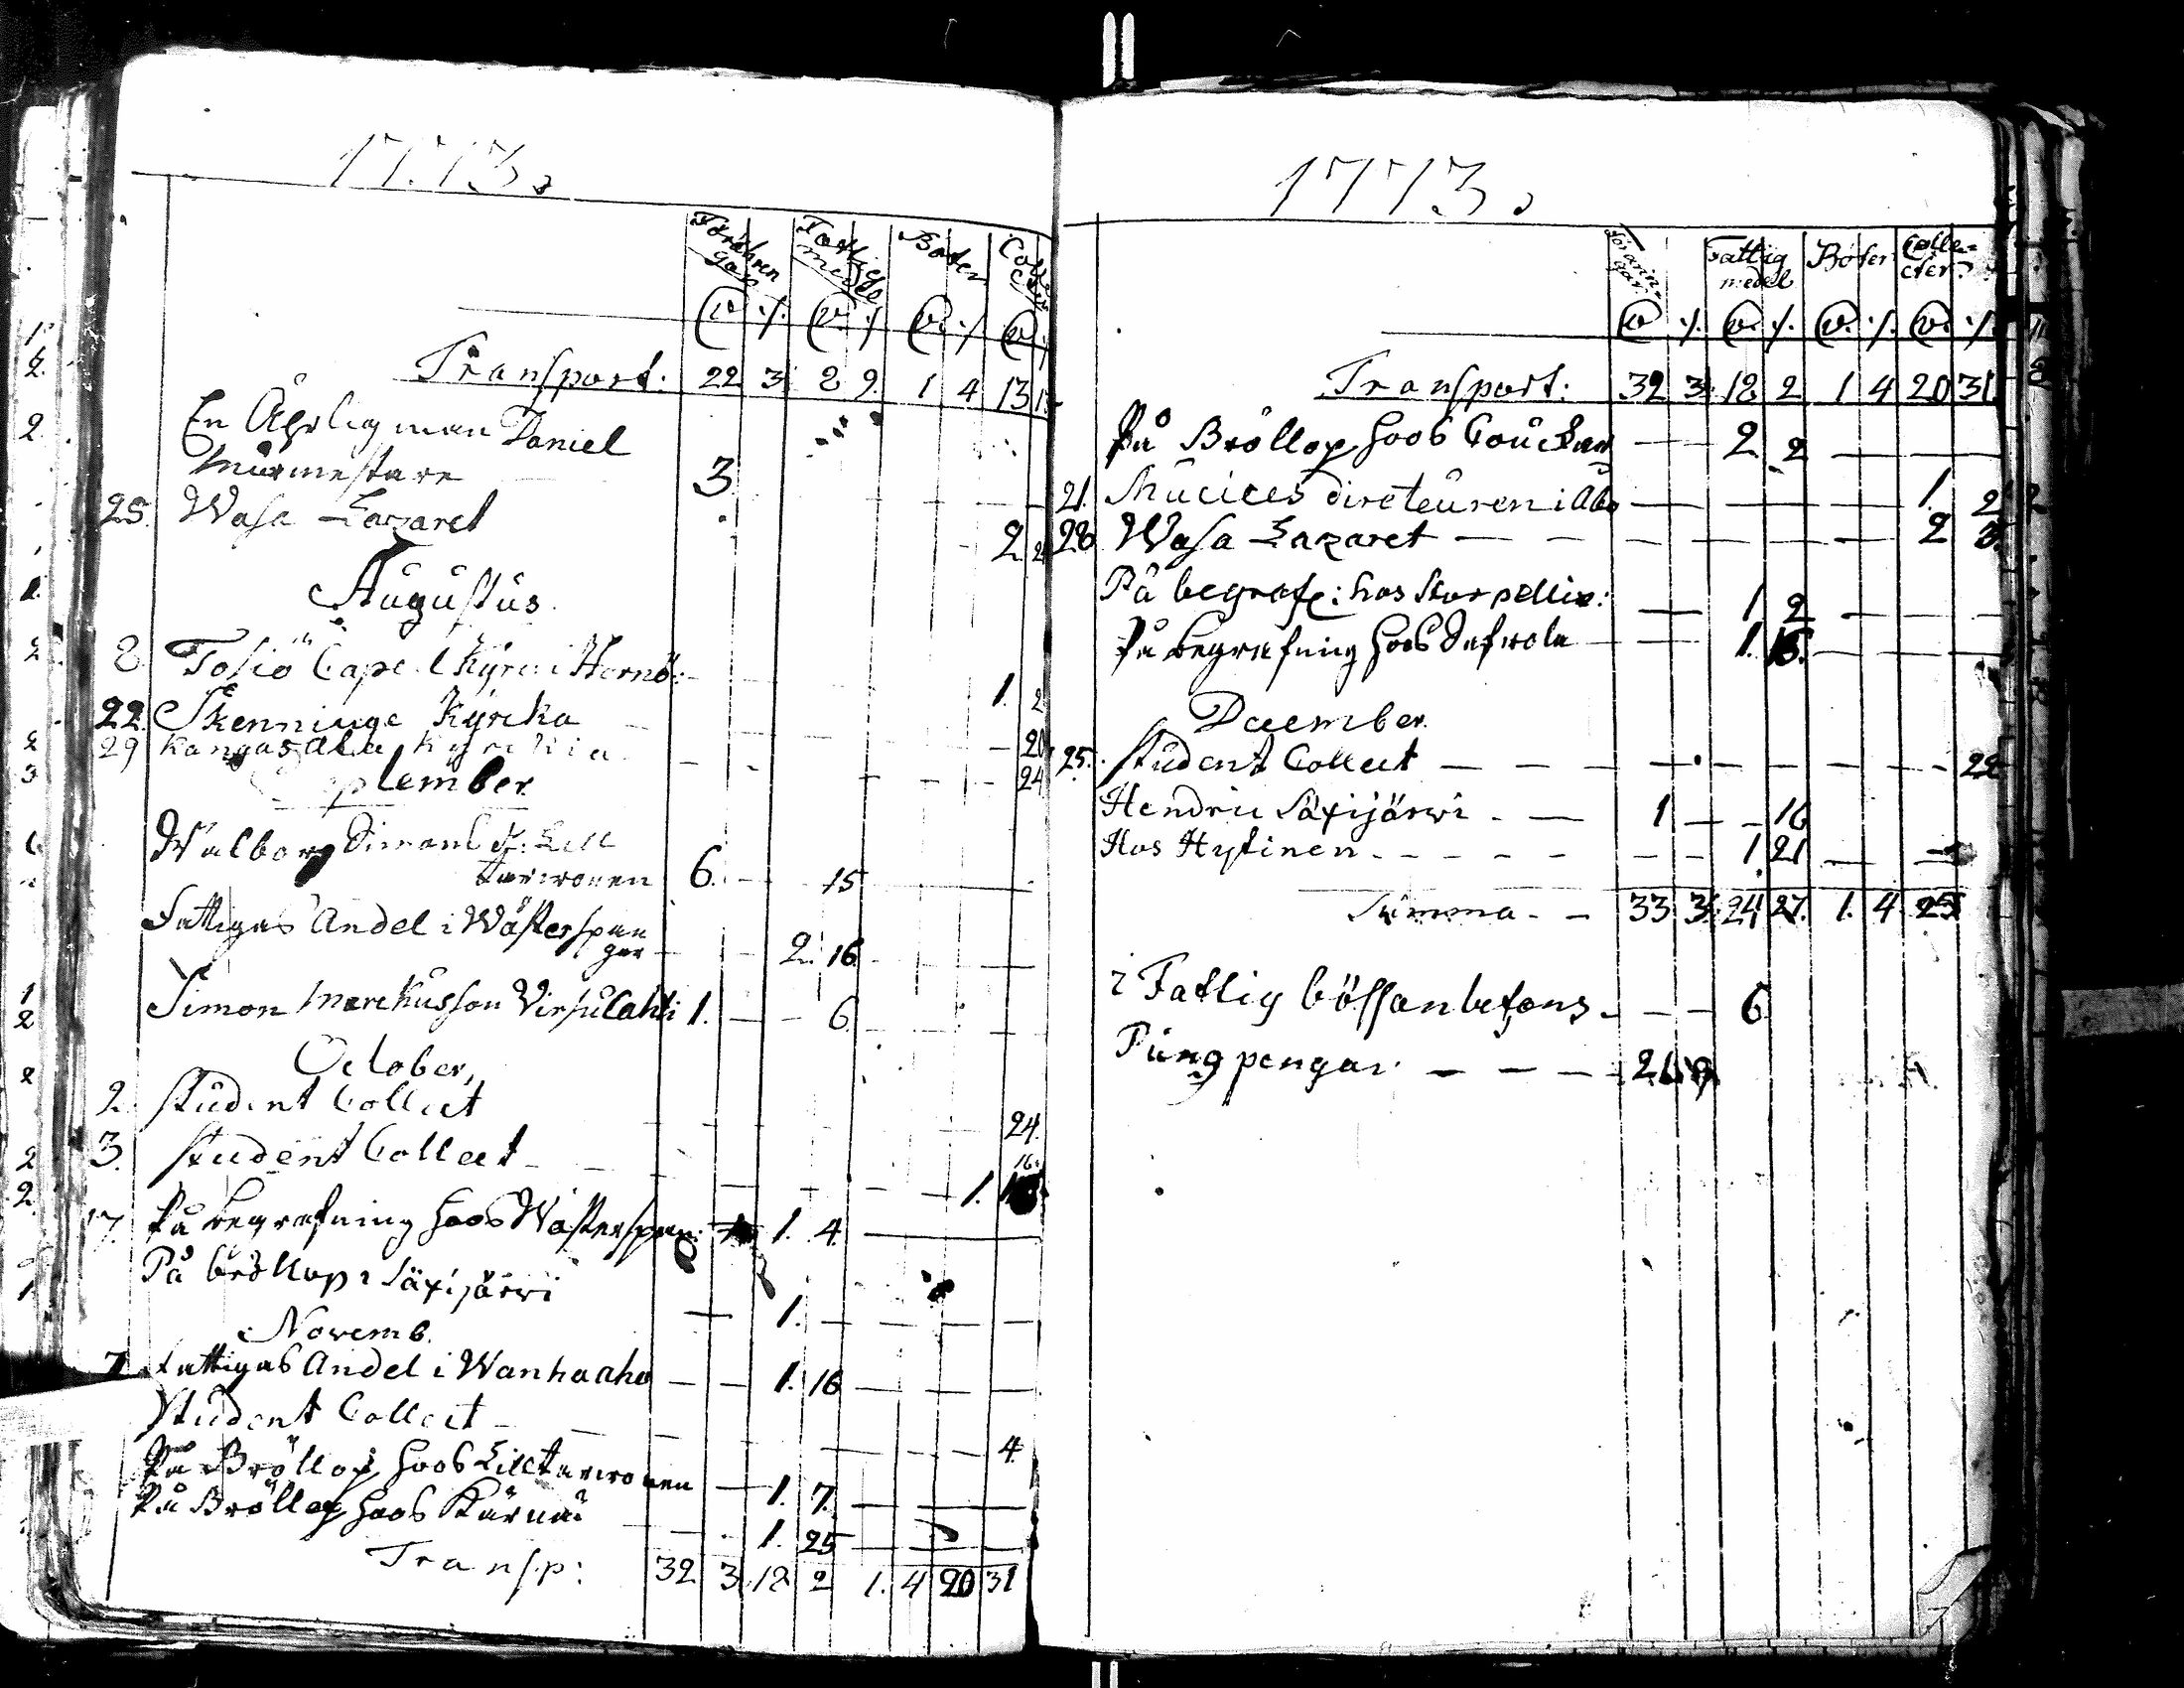 1773.
Föräringar Fattig medel Böter Collecter
Transport: 22 3 2 9. 1 4 13
En Ährlig man Daniel
Mürmestare 3
25. Wasa Lazaret 2
Augustus.
8 Capel Kyrc: i
1. 2
22. Skenninge Kyrcka 20
29 Kangasala Kyrckia 24
September
Walborg Simons d:
6. 15
Fattigas Andel i Wästerspan
gar 2. 16
Simon Marckusson Virsulahti 1. 6.
October,
2. Student Collect 24.
3. Student Collect 1. 16.
17. På begrafning hoos Wästerspan: 1. 4.
På bröllop i Säxijärwi 1.
Novemb.
7 Fattigas Andel i Wanhaaho 1. 16
Student Collect 4.
På Bröllop hoos Lilltarwonen 1. 7.
På Bröllop hoos Kärnä 1. 25
Transp: 32 3. 18 2 1. 4 20 31
1773.
Föräringar Fattig medel Böter Collecter.
Transport: 32 3. 18 2 1 4 20 31
På Bröllop hoos 2 2
21. Mucices direteuren i Åbo 1. 2
28 Wasa Lazaret 2 3.
På begrafn: hos 1 2
På begrafning hoos 1. 16.
December.
25. Student Collect 22
Hendric Säxijärwi 1 16
Hos Hytinen 1. 21
Summa 33 3. 24 27. 1. 4 25
i Fattig bössan befans 6
Pung pengar